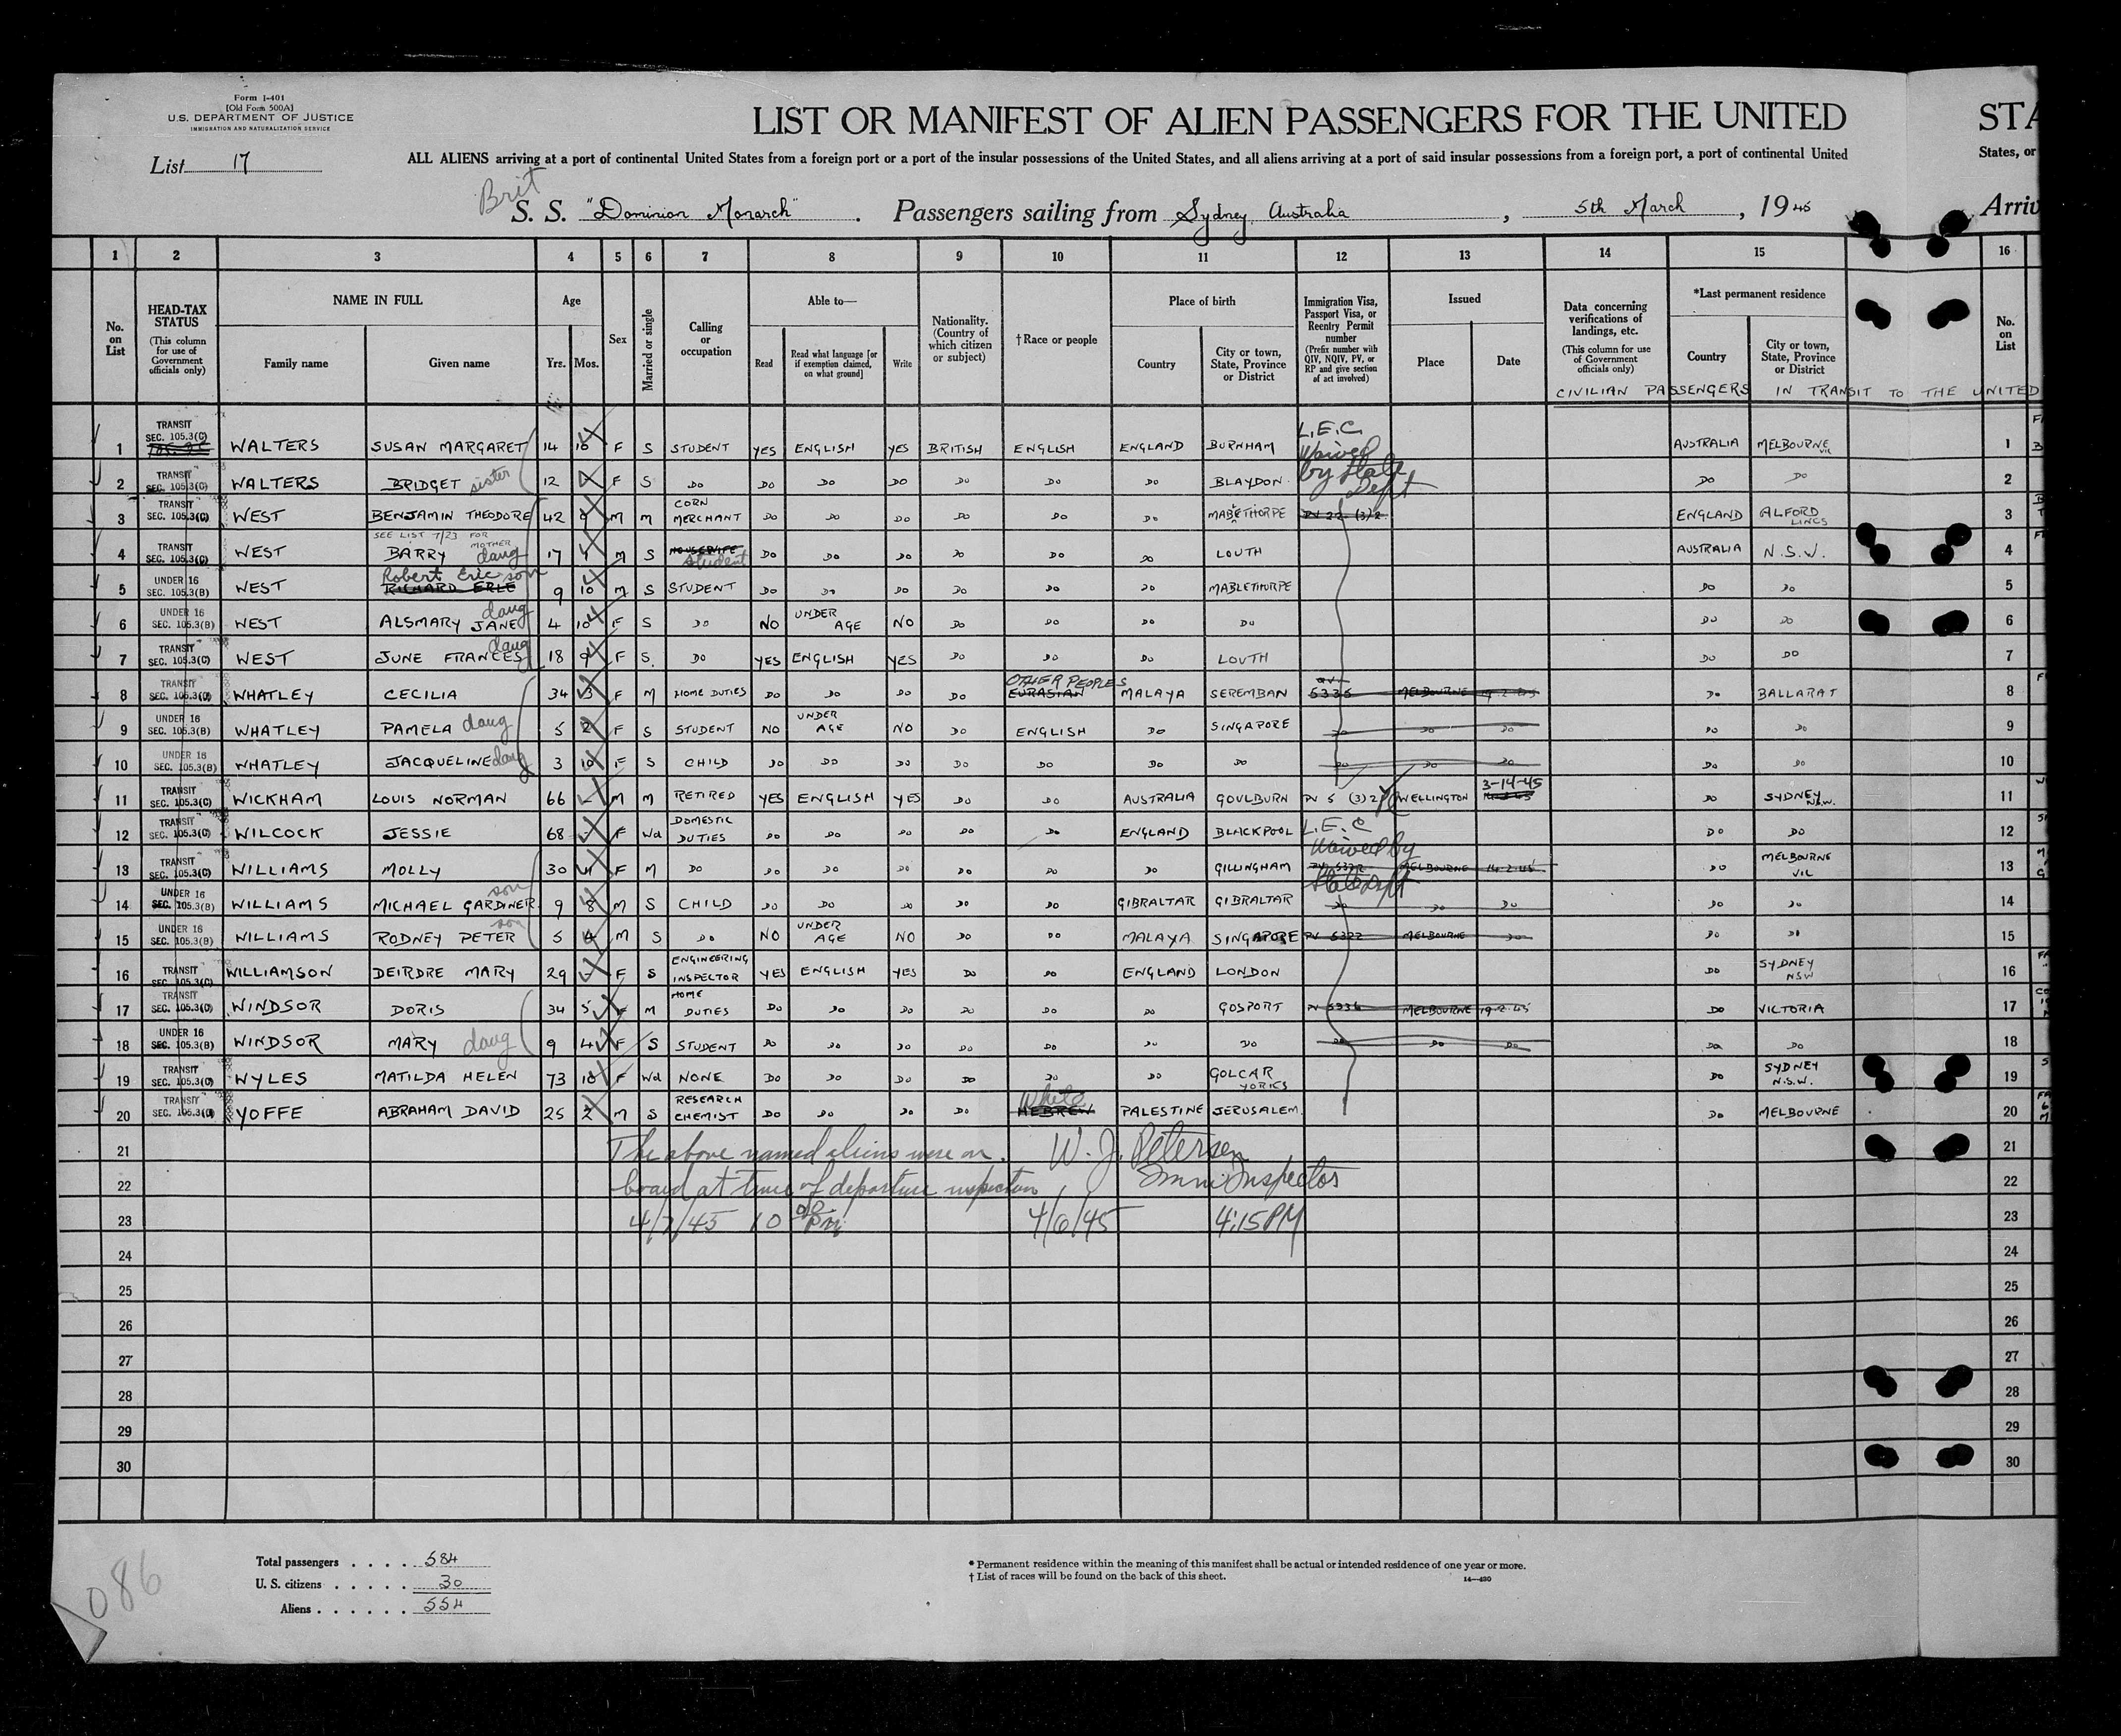 Form I-401
[Old Form 500A]
U.S. DEPARTMENT OF JUSTICE
IMMIGRATION AND NATURALIZATION SERVICE
LIST OR MANIFEST OF ALIEN PASSENGERS FOR THE UNITED STA
List 17
ALL ALIENS arriving at a port of continental United States from a foreign port or a port of the insular possessions of the United States, and all aliens arriving at a port of said insular possessions from a foreign port, a port of continental United States, or
Brit
S. S. "Dominion Monarch". Passengers sailing from Sydney, Australia, 5th March, 1945 Arriv
1 2 3 4 5 6 7 8 9 10 11 12 13 14 15 16
No. on List
HEAD-TAX STATUS (This column for use of Government officials only)
NAME IN FULL Family name Given name
Age Yrs. Mos.
Sex
Married or single
Calling or occupation
Able to— Read Read what language [or if exemption claimed, on what ground] Write
Nationality. (Country of which citizen or subject)
†Race or people
Place of birth Country City or town, State, Province or District
Immigration Visa, Passport Visa, or Reentry Permit number (Prefix number with QIV, NQIV, PV, or RP and give section of act involved)
Issued Place Date
Data concerning verifications of landings, etc. (This column for use of Government officials only)
*Last permanent residence Country City or town, State, Province or District
No. on List
CIVILIAN PASSENGERS IN TRANSIT TO THE UNITED
1 TRANSIT SEC. 105.3(C) WALTERS SUSAN MARGARET 14 10 F S STUDENT YES ENGLISH YES BRITISH ENGLISH ENGLAND BURNHAM L.E.C. Waived by State Dept AUSTRALIA MELBOURNE VIC 1
2 TRANSIT SEC. 105.3(C) WALTERS BRIDGET sister 12 F S DO DO DO DO DO DO DO BLAYDON DO DO 2
3 TRANSIT SEC. 105.3(C) WEST BENJAMIN THEODORE 42 9 M M CORN MERCHANT DO DO DO DO DO DO MABLETHORPE PV 22 (3) 2 ENGLAND ALFORD LINCS 3
SEE LIST 7/23 FOR MOTHER
4 TRANSIT SEC. 105.3(C) WEST BARRY daug 17 1 M S HOUSEWIFE Student DO DO DO DO DO DO LOUTH AUSTRALIA N.S.W. 4
5 UNDER 16 SEC. 105.3(B) WEST Robert Eric son RICHARD ERLE 9 10 M S STUDENT DO DO DO DO DO DO MABLETHORPE DO DO 5
6 UNDER 16 SEC. 105.3(B) WEST ALSMARY JANE daug 4 10 F S DO NO UNDER AGE NO DO DO DO DO DO DO 6
7 TRANSIT SEC. 105.3(C) WEST JUNE FRANCES daug 18 9 F S. DO YES ENGLISH YES DO DO DO LOUTH DO DO 7
8 TRANSIT SEC. 105.3(C) WHATLEY CECILIA 34 3 F M HOME DUTIES DO DO DO DO OTHER PEOPLES EURASIAN MALAYA SEREMBAN 5335 MELBOURNE 19.2.45 DO BALLARAT 8
9 UNDER 16 SEC. 105.3(B) WHATLEY PAMELA daug 5 2 F S STUDENT NO UNDER AGE NO DO ENGLISH DO SINGAPORE DO DO DO DO DO 9
10 UNDER 16 SEC. 105.3(B) WHATLEY JACQUELINE daug 3 10 F S CHILD DO DO DO DO DO DO DO DO DO DO DO DO 10
11 TRANSIT SEC. 105.3(C) WICKHAM LOUIS NORMAN 66 - M M RETIRED YES ENGLISH YES DO DO AUSTRALIA GOULBURN PV 5 (3) 2 WELLINGTON 3-14-45 DO SYDNEY N.S.W. 11
12 TRANSIT SEC. 105.3(C) WILCOCK JESSIE 68 - F Wd DOMESTIC DUTIES DO DO DO DO DO ENGLAND BLACKPOOL L.E.C Waived by State Dept DO DO 12
13 TRANSIT SEC. 105.3(C) WILLIAMS MOLLY 30 F M DO DO DO DO DO DO DO GILLINGHAM PV 5322 MELBOURNE 14.2.45 DO MELBOURNE VIC 13
14 UNDER 16 SEC. 105.3(B) WILLIAMS MICHAEL GARDINER son 9 8 M S CHILD DO DO DO DO DO GIBRALTAR GIBRALTAR DO DO DO DO DO 14
15 UNDER 16 SEC. 105.3(B) WILLIAMS RODNEY PETER son 5 4 M S DO NO UNDER AGE NO DO DO MALAYA SINGAPORE PV 5322 MELBOURNE DO DO DO 15
16 TRANSIT SEC. 105.3(C) WILLIAMSON DEIRDRE MARY 29 - F S ENGINEERING INSPECTOR YES ENGLISH YES DO DO ENGLAND LONDON DO SYDNEY NSW 16
17 TRANSIT SEC. 105.3(C) WINDSOR DORIS 34 5 F M HOME DUTIES DO DO DO DO DO DO GOSPORT PV 5336 MELBOURNE 19.2.45 DO VICTORIA 17
18 UNDER 16 SEC. 105.3(B) WINDSOR MARY daug 9 4 F S STUDENT DO DO DO DO DO DO DO DO DO DO DO DO 18
19 TRANSIT SEC. 105.3(C) WYLES MATILDA HELEN 73 10 F Wd NONE DO DO DO DO DO DO GOLCAR YORKS DO SYDNEY N.S.W. 19
20 TRANSIT SEC. 105.3(C) YOFFE ABRAHAM DAVID 25 2 M S RESEARCH CHEMIST DO DO DO DO White HEBREW PALESTINE JERUSALEM DO MELBOURNE 20
21 The above named aliens were on W. J. Petersen 21
22 board at time of departure inspection Immi Inspector 22
23 4/7/45 10 PM 4/6/45 4:15 PM 23
24 24
25 25
26 26
27 27
28 28
29 29
30 30
Total passengers . . . . 584
U. S. citizens . . . . . 30
Aliens . . . . . . 554
* Permanent residence within the meaning of this manifest shall be actual or intended residence of one year or more.
† List of races will be found on the back of this sheet.
14—430
086